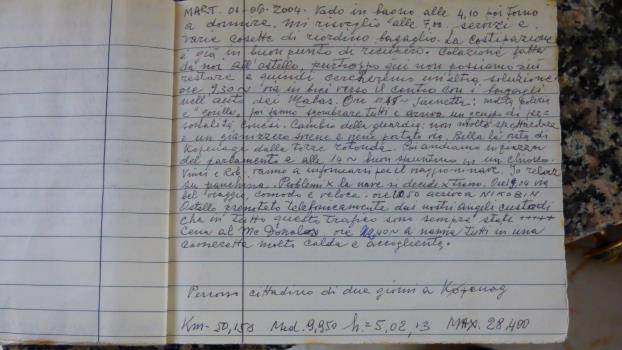 MART. 01-06-2004. Vado in bagno alle 4,10 poi torno
a dormire. Mi risveglio alle 7,00, servizi e
varie cosette di riordino bagaglio. La costipazione
è ora in buon punto di recupero. Colazione fatta
da noi all'ostello, purtroppo qui non possiamo più
restare e quindi cercheremo un'altra soluzione
ore 9.30 ~ via in bici verso il centro con i bagagli
nell'auto dei Ore 11.45 ~ molta polizia
e poi fanno sgombrare tutti e arriva un gruppo di per
sonalità cinesi. Cambio della guardia: non molto spettacolare
e un giannizzero sviene e viene portato via. Bella la vista di
Kopenag dalla torre rotonda. Poi andiamo in piazza
del parlamento e alle 14 ~ buon spuntino in un chiosco.
Vinci e Rob. vanno a informarsi per il viaggio in nave. Io relax
su panchina. Problemi x la nave si decide x treno. Ore 19,04 via
bel viaggio, comodo e veloce. ore 20.50 arrivo a
Ostello prenotato telefonicamente dai nostri angeli custodi
che in tutto questo traffico sono sempre stati +++++
Cena al Mc Donalds ore 22,40 ~ a nanna tutti in una
cameretta molto calda e accogliente.
Percorso cittadino di due giorni a Kopenag
Km - 50,150 Med. 9,950 h = 5,02,13 MAX. 28,400